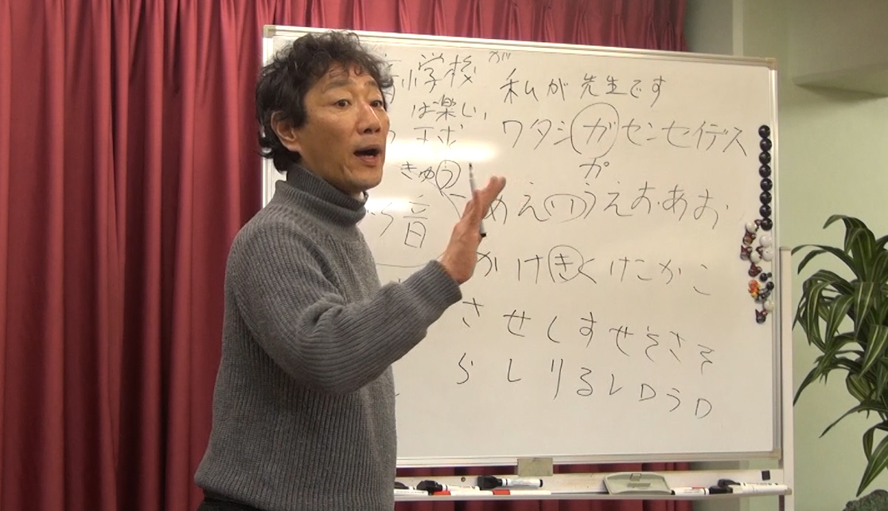 小学校が
は楽しい
きゅう
音
私が先生です
ワタシガセンセイデス
カ゚
あえいうえおあお
かけきくけこかこ
させしすせそさそ
らレりるレロらロ